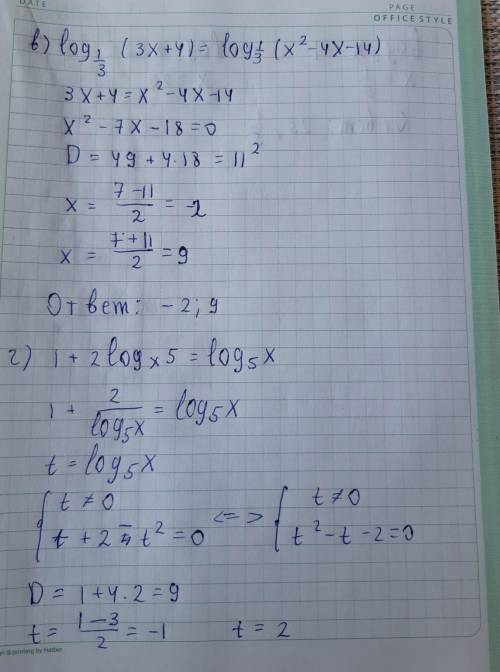 DATE
PAGE
OFFICE STYLE
в) log_{1/3} (3x+4) = log_{1/3} (x²-4x-14)
3x+4=x²-4x-14
x²-7x-18=0
D=49+4·18=11²
x = (7-11)/2 = -2
x = (7+11)/2 = 9
Ответ: -2; 9
г) 1+2log_x 5 = log_5 x
1+ 2/(log_5 x) = log_5 x
t=log_5 x
{ t≠0 <=> { t≠0
{ t+2-t²=0 { t²-t-2=0
D=1+4·2=9
t= (1-3)/2 = -1 t=2